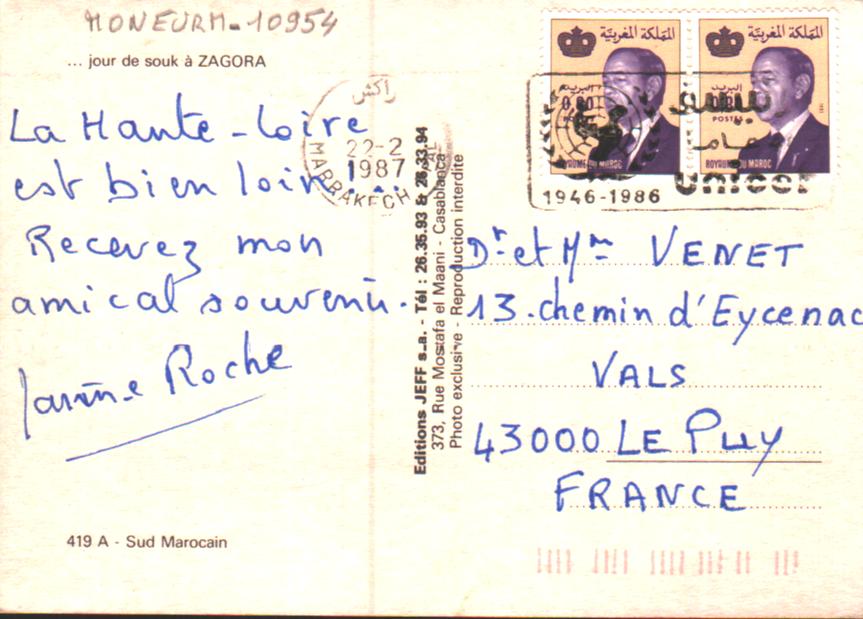 MONEURM-10954
... jour de souk à ZAGORA
La Haute-Loire
est bien loin...
Recevez mon
amical souvenir.
Roche
419 A - Sud Marocain
راكش
22-2
1987
MARRAKECH
Editions JEFF s-a. - Tél : 26.35.93 & 26.33.94
373, Rue Mostafa el Maani - Casablanca
Photo exclusive - Reproduction interdite
المملكة المغربية
البريد
0.80
ROYAUME DU MAROC
المملكة المغربية
البريد
POSTES
ROYAUME DU MAROC
unicef
1946-1986
Dr et Mme VENET
13.chemin d'Eycenac
VALS
43000 LE PUY
FRANCE